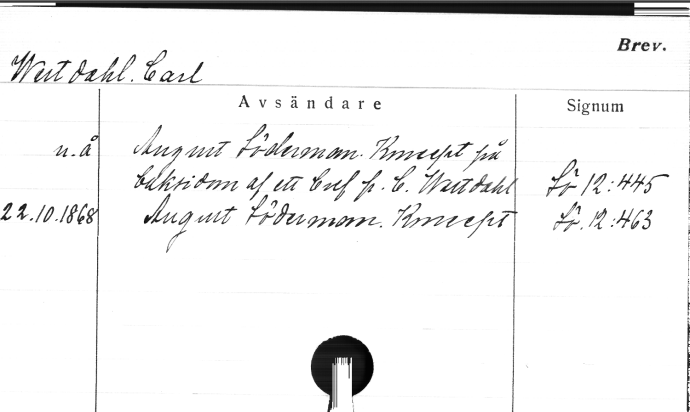 Brev.
Westdahl. Carl
Avsändare
Signum
u.å August Söderman. Koncept på
baksidan af ett bref fr. C. Westdahl Sö 12:445
22.10.1868 August Söderman. Koncept Sö. 12:463